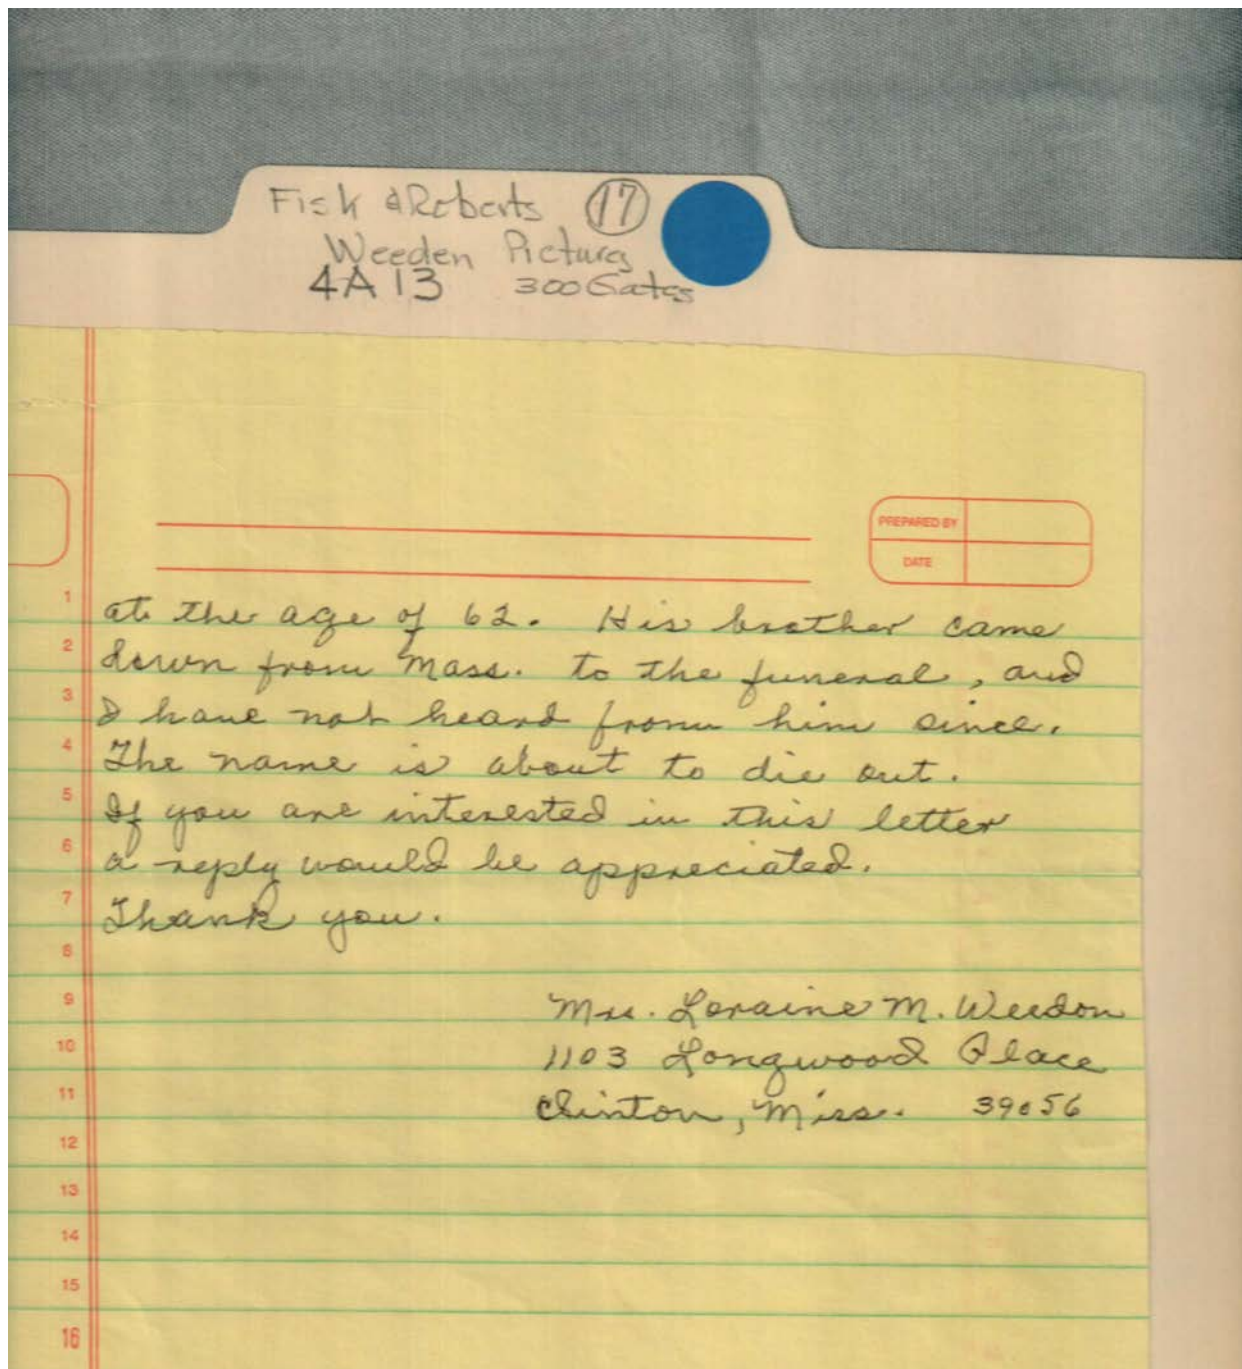 Fisk & Roberts 17
Weeden Pictures
4A13 300 Gates
PREPARED BY
DATE
1 at the age of 62. His brother came
2 down from Mass. to the funeral, and
3 I have not heard from him since.
4 The name is about to die out.
5 If you are interested in this letter
6 a reply would be appreciated.
7 Thank you.
8
9 Mrs. Loraine M. Weedon
10 1103 Longwood Place
11 Clinton, Miss. 39056
12
13
14
15
16